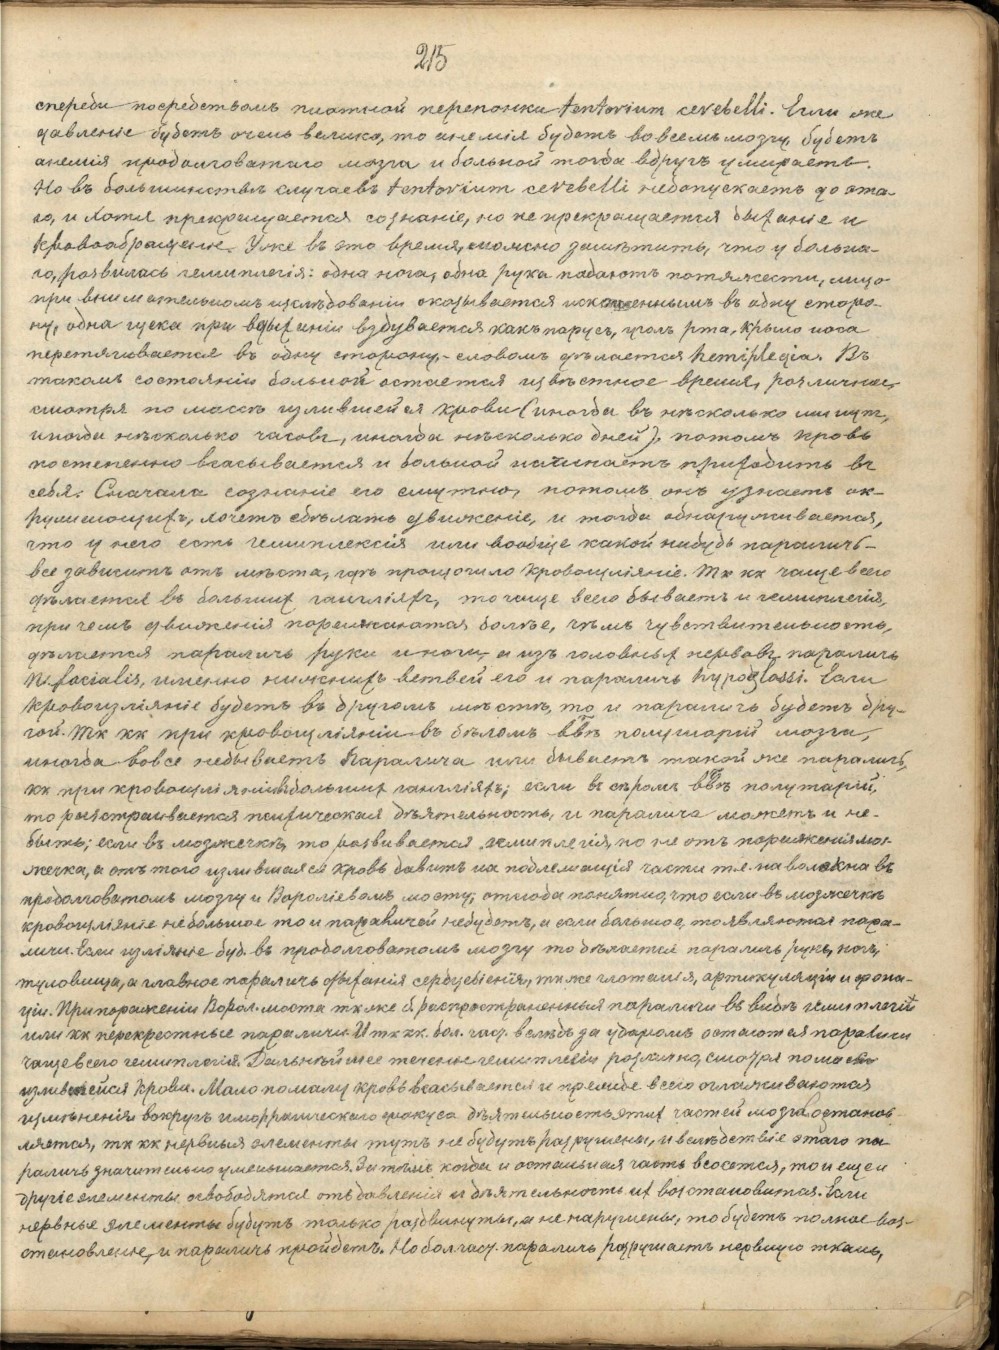 215
спереди посредствомъ плотной перепонки tentorium cerebelli. Если же
давленіе будетъ очень велико, то анемія будетъ во всемъ мозгу, будетъ
анемія продолговатаго мозга и больной тогда вдругъ умираетъ.
Но въ большинствѣ случаевъ tentorium cerebelli недопускаетъ до эта-
го, и хотя прекращается сознаніе, но не прекращается дыханіе и
кровообращеніе. Уже въ это время, можно замѣтить, что у больна-
го, развилась гемиплегія: одна нога, одна рука падаютъ потяжести, лицо
при внимательномъ изслѣдованіи оказывается искаженнымъ въ одну сторо-
ну, одна щека при вдыханіи вздувается какъ парусъ, уголъ рта, крыло носа
перетягивается въ одну сторону, - словомъ дѣлается hemiplegia. Въ
такомъ состояніи больной остается извѣстное время, различное,
смотря по массѣ излившейся крови (иногда въ нѣсколько минут,
иногда нѣсколько часовъ, иногда нѣсколько дней), потомъ кровь
постепенно всасывается и больной начинаетъ приходить въ
себя. Сначала сознаніе его смутно, потомъ онъ узнаетъ ок-
ружающихъ, хочетъ сдѣлать движеніе, и тогда обнаруживается,
что у него есть гемиплексія или вообще какой нибудь параличъ -
все зависитъ отъ мѣста, гдѣ произошло кровоизліяніе. Тк кк чаще всего
дѣлается въ большихъ гангліяхъ, то чаще всего бываетъ и гемиплегія,
при чемъ движенія поражаются болѣе, чѣмъ чувствительность,
дѣлается параличъ руки и ноги, а изъ головныхъ нервовъ параличъ
N. facialis, именно нижнихъ ветвей его и параличъ hypoglossi. Если
кровоизліяніе будетъ въ другомъ мѣстѣ, то и параличъ будетъ дру-
гой. Тк кк при кровоизліяніи въ бѣломъ в-вѣ полушарій мозга,
иногда вовсе небываетъ паралича или бываетъ такой же параличъ,
кк при кровоизліяніи въ большихъ гангліяхъ; если въ сѣромъ в-вѣ полушарій,
то разстраивается психическая дѣятельность, и паралича можетъ и не-
быть; если въ мозжечкѣ, то развивается гемиплегія, но не отъ пораженія моз-
жечка, а отъ того излившаяся кровь давитъ на подлежащія части т.е. на волокна въ
продолговатомъ мозгу и Вароліевомъ мосту; отсюда понятно, что если въ мозжечкѣ
кровоизліяніе небольшое то и параличей небудетъ, а если большое, то являются пара-
личи. Если изліяніе буд. въ продолговатомъ мозгу то дѣлается параличъ рукъ, ногъ,
туловища, а главное параличъ дыханія сердцебіенія, ткже глотанія, артикуляціи и фона-
ціи. При пораженіи Варол. моста ткже б. распространенныя параличи въ видѣ гемиплегій
или кк перекрестные параличи. И тк кк. бол. част. вслѣдъ за ударомъ остаются параличи
чаще всего гемиплегія. Дальнѣйшее теченіе гемиплегіи различно, смотря по массѣ
излившейся крови. Мало помалу кровь всасывается и прежде всего сглаживаются
измѣненія вокругъ гморрагическаго фокуса дѣятельность этихъ частей мозга возстанов-
ляется, тк кк нервныя элементы тутъ не будутъ разрушены, и вслѣдствіе этаго па
раличъ значительно уменьшается. За тѣмъ когда и остальная часть всосется, то и еще и
другіе элементы освободятся отъ давленія и дѣятельность ихъ возстановится. Если
нервные элементы будутъ только раздвинуты, а не нарушены, то будетъ полное воз-
становленіе, и параличъ пройдетъ. Но бол. част. параличъ разрушаетъ нервную ткань,